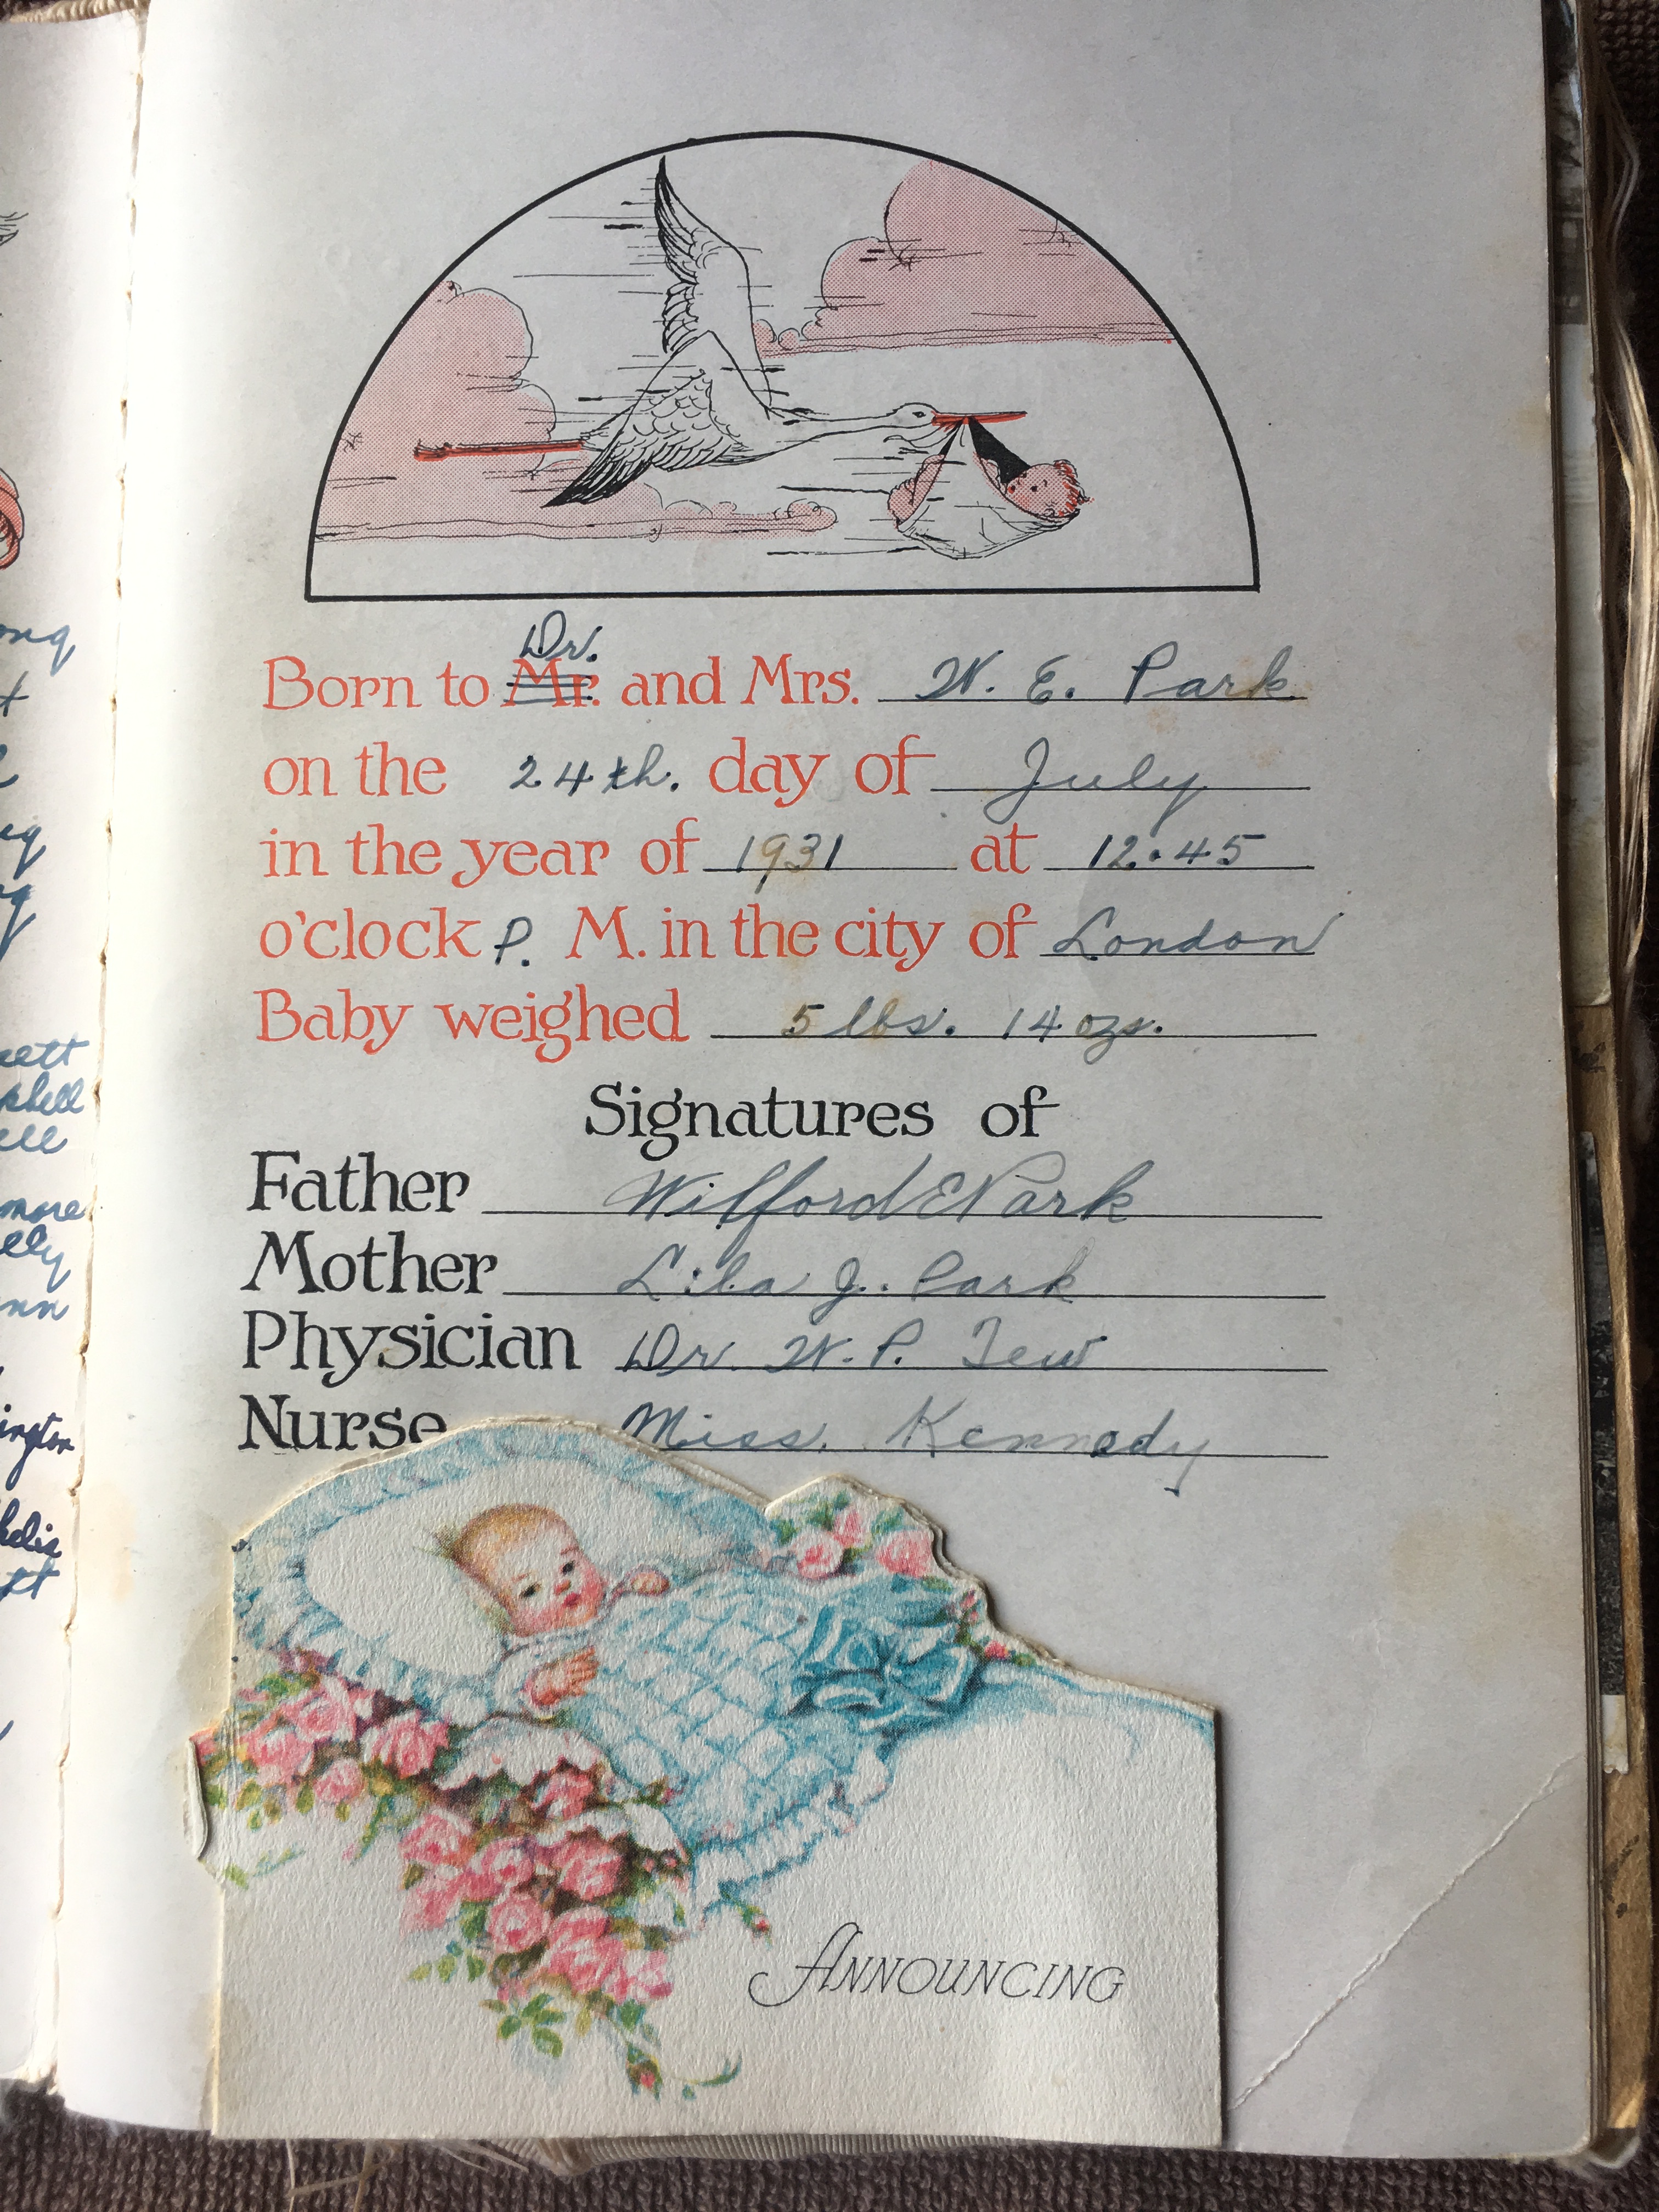 Dr.
Born to Mr. and Mrs. W. E. Park
on the 24th. day of July
in the year of 1931 at 12.45
o'clock P. M. in the city of London
Baby weighed 5 lbs. 14 ozs.
Signatures of
Father Wilford E Park
Mother Lila J. Park
Physician Dr. W. P. Tew
Nurse Miss. Kennedy
ANNOUNCING